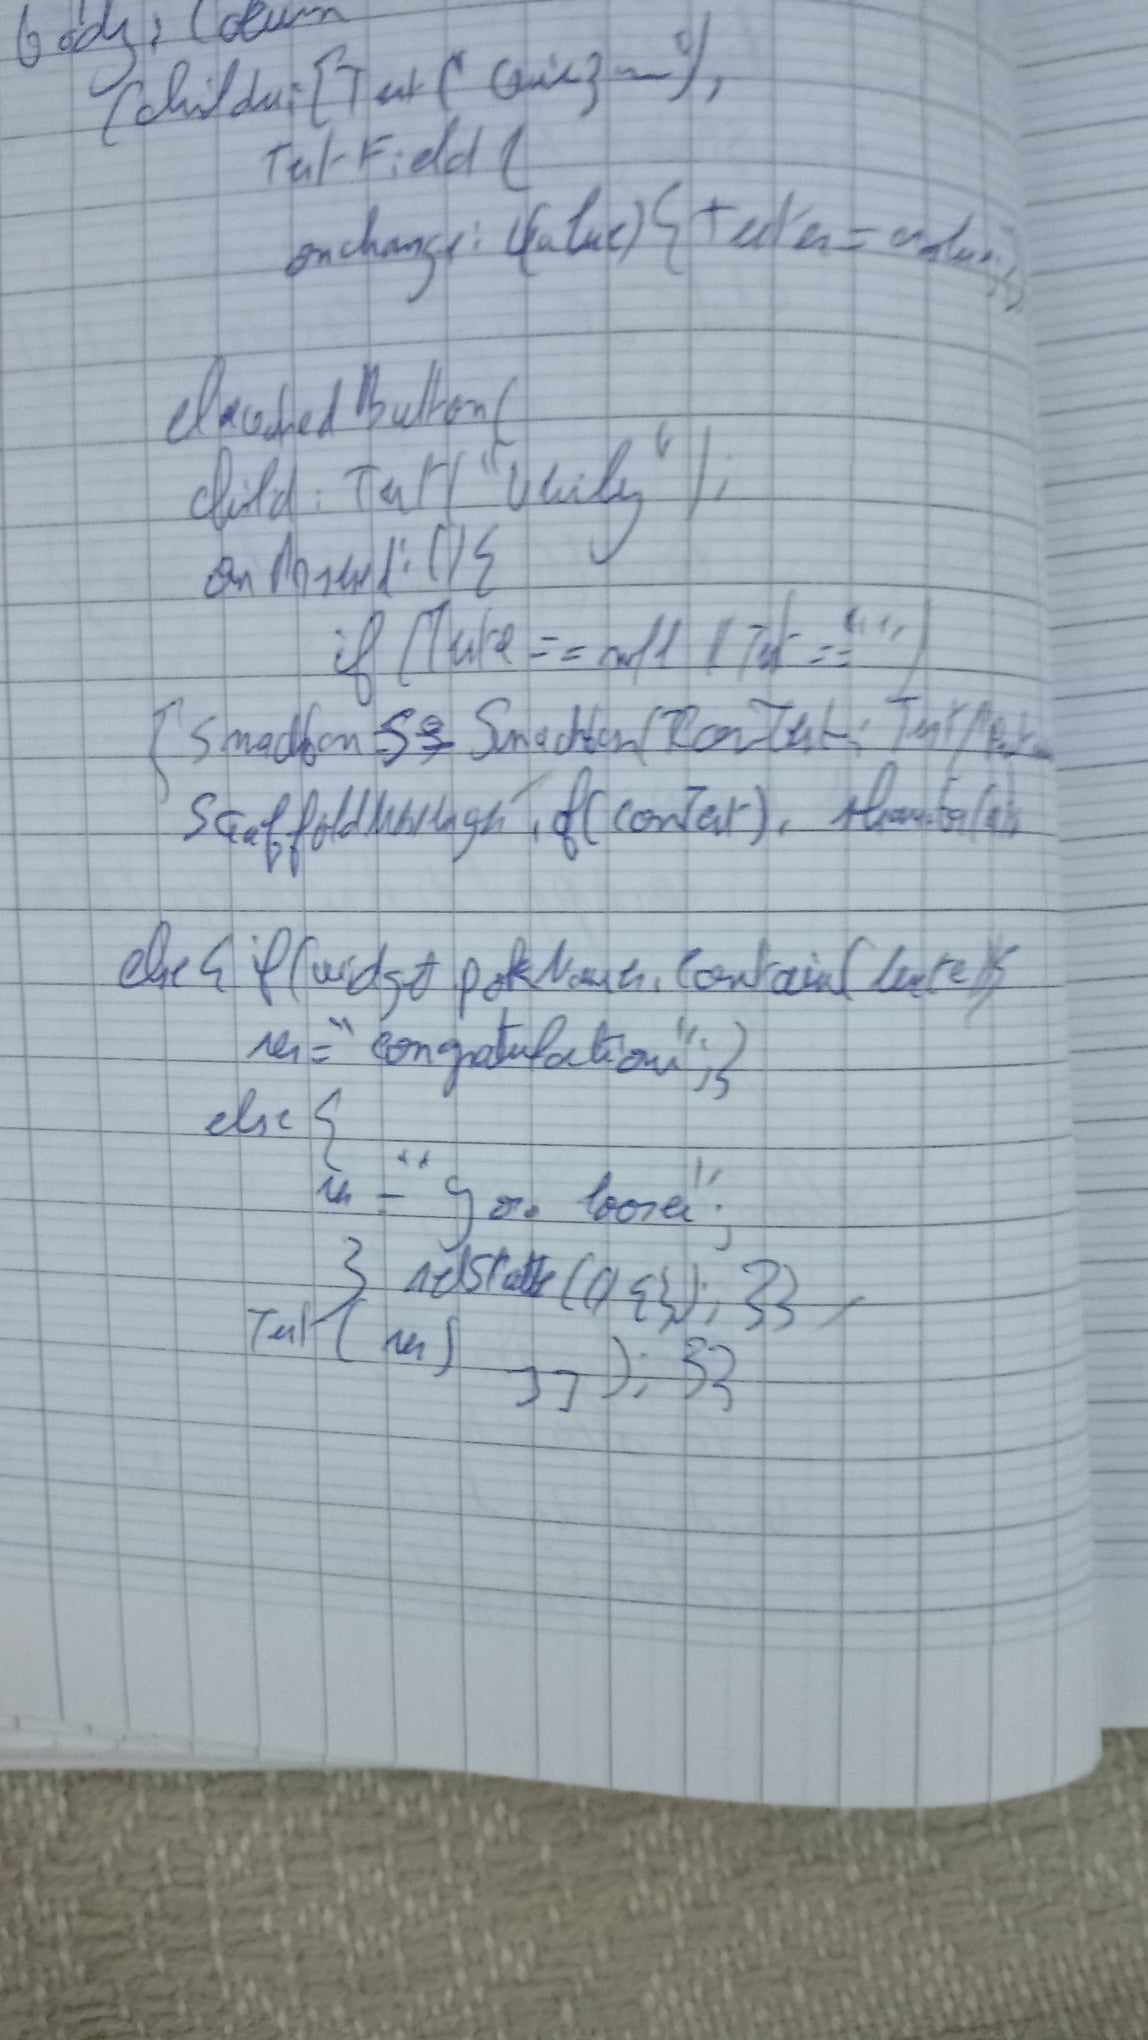 body: Column
(children: [Text("Quiz"),
TextField(
onchange: (value) { = value;
elevatedButton(
child: Text("Verify");
onPressed: () {
if (Texte == null || Text == "")
{ Snackbar Snackbar(Content: Text(
Scaffold .of(context).
else { if (widget.pokNames.contain(texte)) {
res = "congratulation"; }
else {
res = "you looser";
} setState(() {}); }}
Text(res) ]); }}